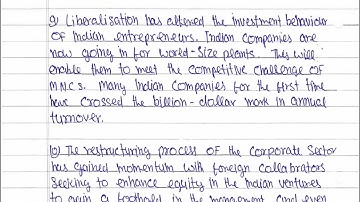 9) Liberalisation has altered the investment behaviour
of Indian entrepreneurs. Indian companies are
now going in for world-size plants. This will
enable them to meet the competitive challenge of
M.N.C s. Many Indian companies for the first time
have crossed the billion-dollar mark in annual
turnover.
10) The restructuring process of the corporate sector
has gained momentum with foreign collabrators
seeking to enhance equity in the Indian ventures
to gain a foothold in the management and even